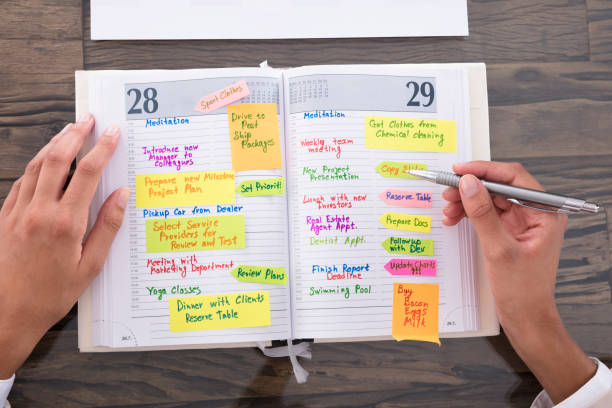 28
Sport Clothes
Meditation
Drive to
Post
Ship
Packages
Introduce new
Manager to
Colleagues
Prepare new Milestone
Project Plan
Set Priority!
Pickup Car from Dealer
Select Service
Providers for
Review and Test
Meeting with
Marketing Department
Review Plans
Yoga Classes
Dinner with Clients
Reserve Table
29
Meditation
Get Clothes from
Chemical cleaning
Weekly team
meeting
New Project
Presentation
Copy Slides
Lunch with new
Investors
Reserve Table
Real Estate
Agent Appt.
Prepare Docs
Dentist Appt.
Followup
with Dev
Finish Report
Deadline
Update Charts
!!!
Swimming Pool
Buy
Bacon
Eggs
Milk